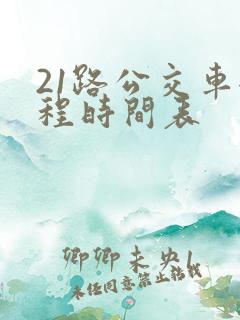 21路公交車
程時間表
卿卿未央
未經同意禁止轉載